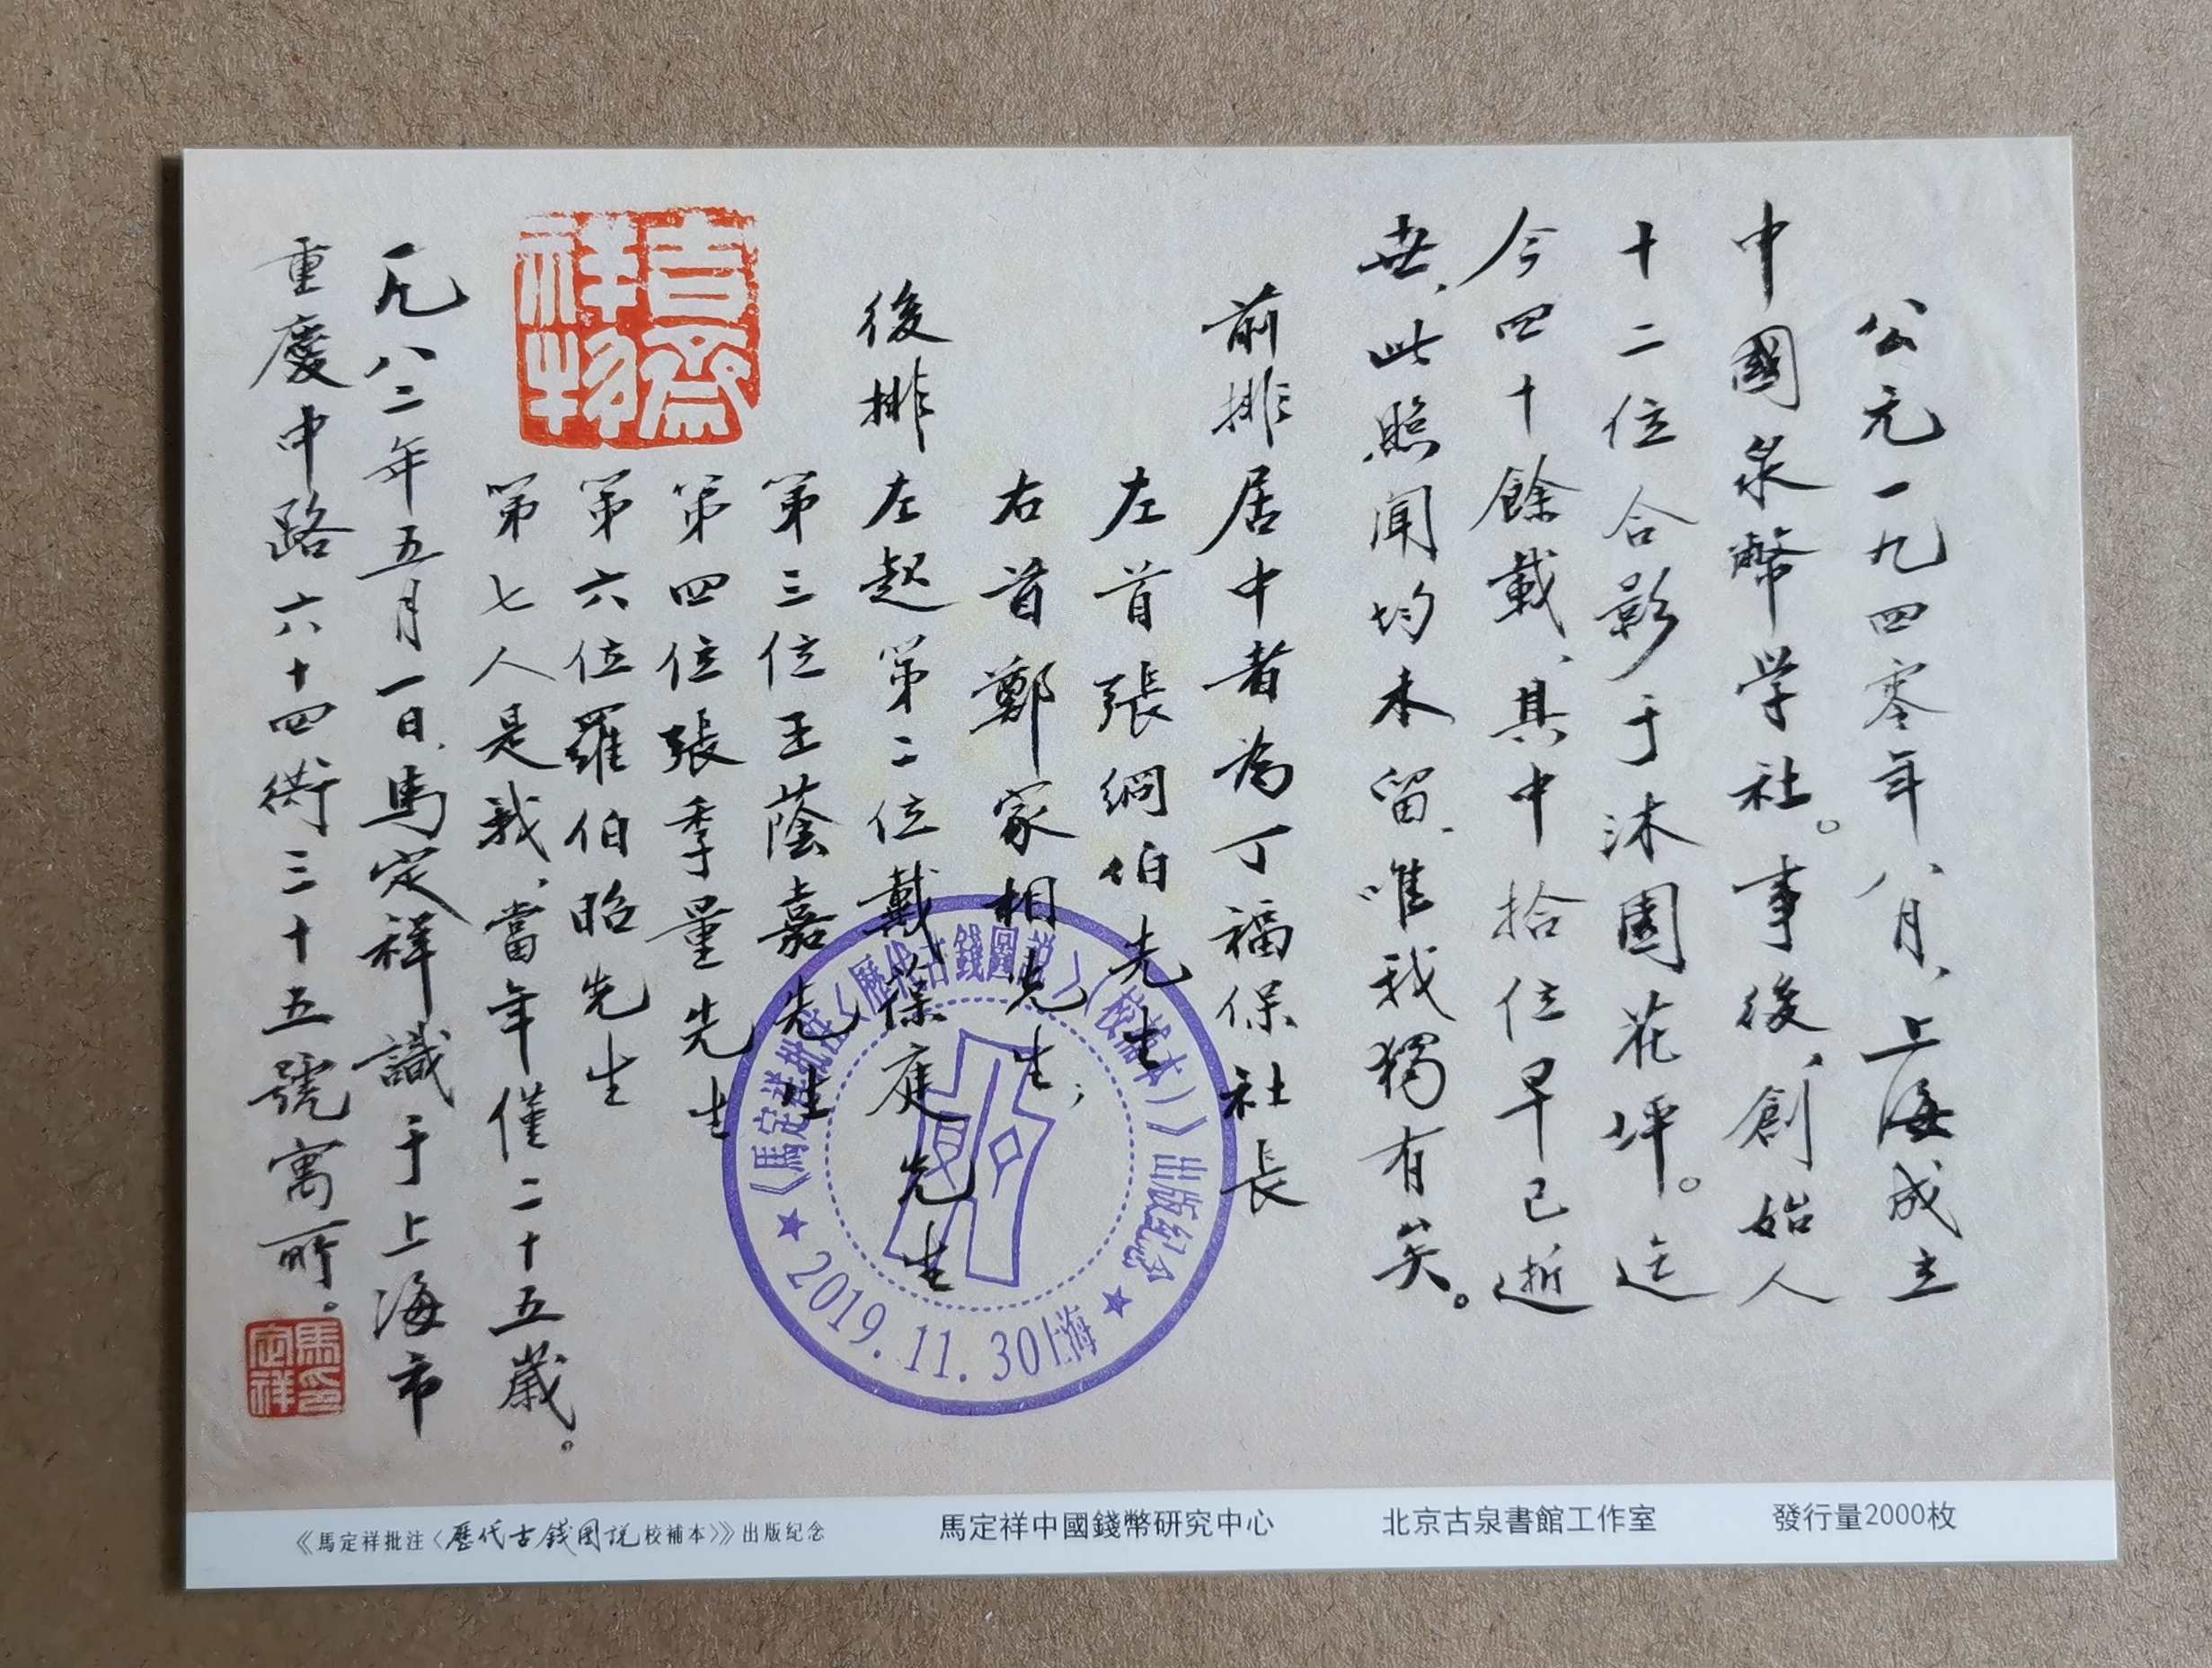 公元一九四零年八月、上海成立
中國泉幣学社。事後、創始人
十二位合影于沐園花坪。迄
今四十餘載、其中拾位早已逝
世、此照闻均未留、唯我獨有矣。
前排居中者為丁福保社長
左首張絅伯先生
右首鄭家相先生;
後排左起第二位戴葆庭先生
第三位王蔭嘉先生
第四位張季量先生
第六位羅伯昭先生
第七人是我、當年僅二十五歲。
一九八二年五月一日、馬定祥識于上海市
重慶中路六十四衖三十五號寓所。
吉齋祥物
馬定祥印
《馬定祥批注〈歷代古錢圖說〉(校補本)》出版纪念
2019.11.30上海
《馬定祥批注〈歷代古錢図説校補本〉》出版纪念 馬定祥中國錢幣研究中心 北京古泉書館工作室 發行量2000枚